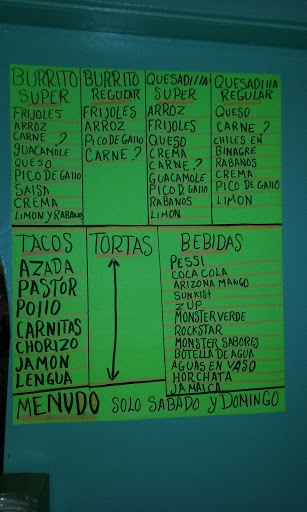 BURRITO
SUPER
FRIJOLES
ARROZ
CARNE ?
GUACAMOLE
QUESO
PICO DE GALLO
SALSA
CREMA
LIMON Y RABANOS
BURRITO
REGULAR
FRIJOLES
ARROZ
PICO DE GALLO
CARNE ?
QUESADILLA
SUPER
ARROZ
FRIJOLES
QUESO
CREMA
CARNE ?
GUACAMOLE
PICO D. GALLO
RABANOS
LIMON
QUESADILLA
REGULAR
QUESO
CARNE ?
CHILES EN
BINAGRE
RABANOS
CREMA
PICO DE GALLO
LIMON
TACOS
AZADA
PASTOR
POLLO
CARNITAS
CHORIZO
JAMON
LENGUA
TORTAS
BEBIDAS
PESSI
COCA COLA
ARIZONA MANGO
SUNKIST
ZUP
MONSTER VERDE
ROCKSTAR
MONSTER SABORES
BOTELLA DE AGUA
AGUAS EN VASO
HORCHATA
JAMAICA
MENUDO SOLO SABADO Y DOMINGO